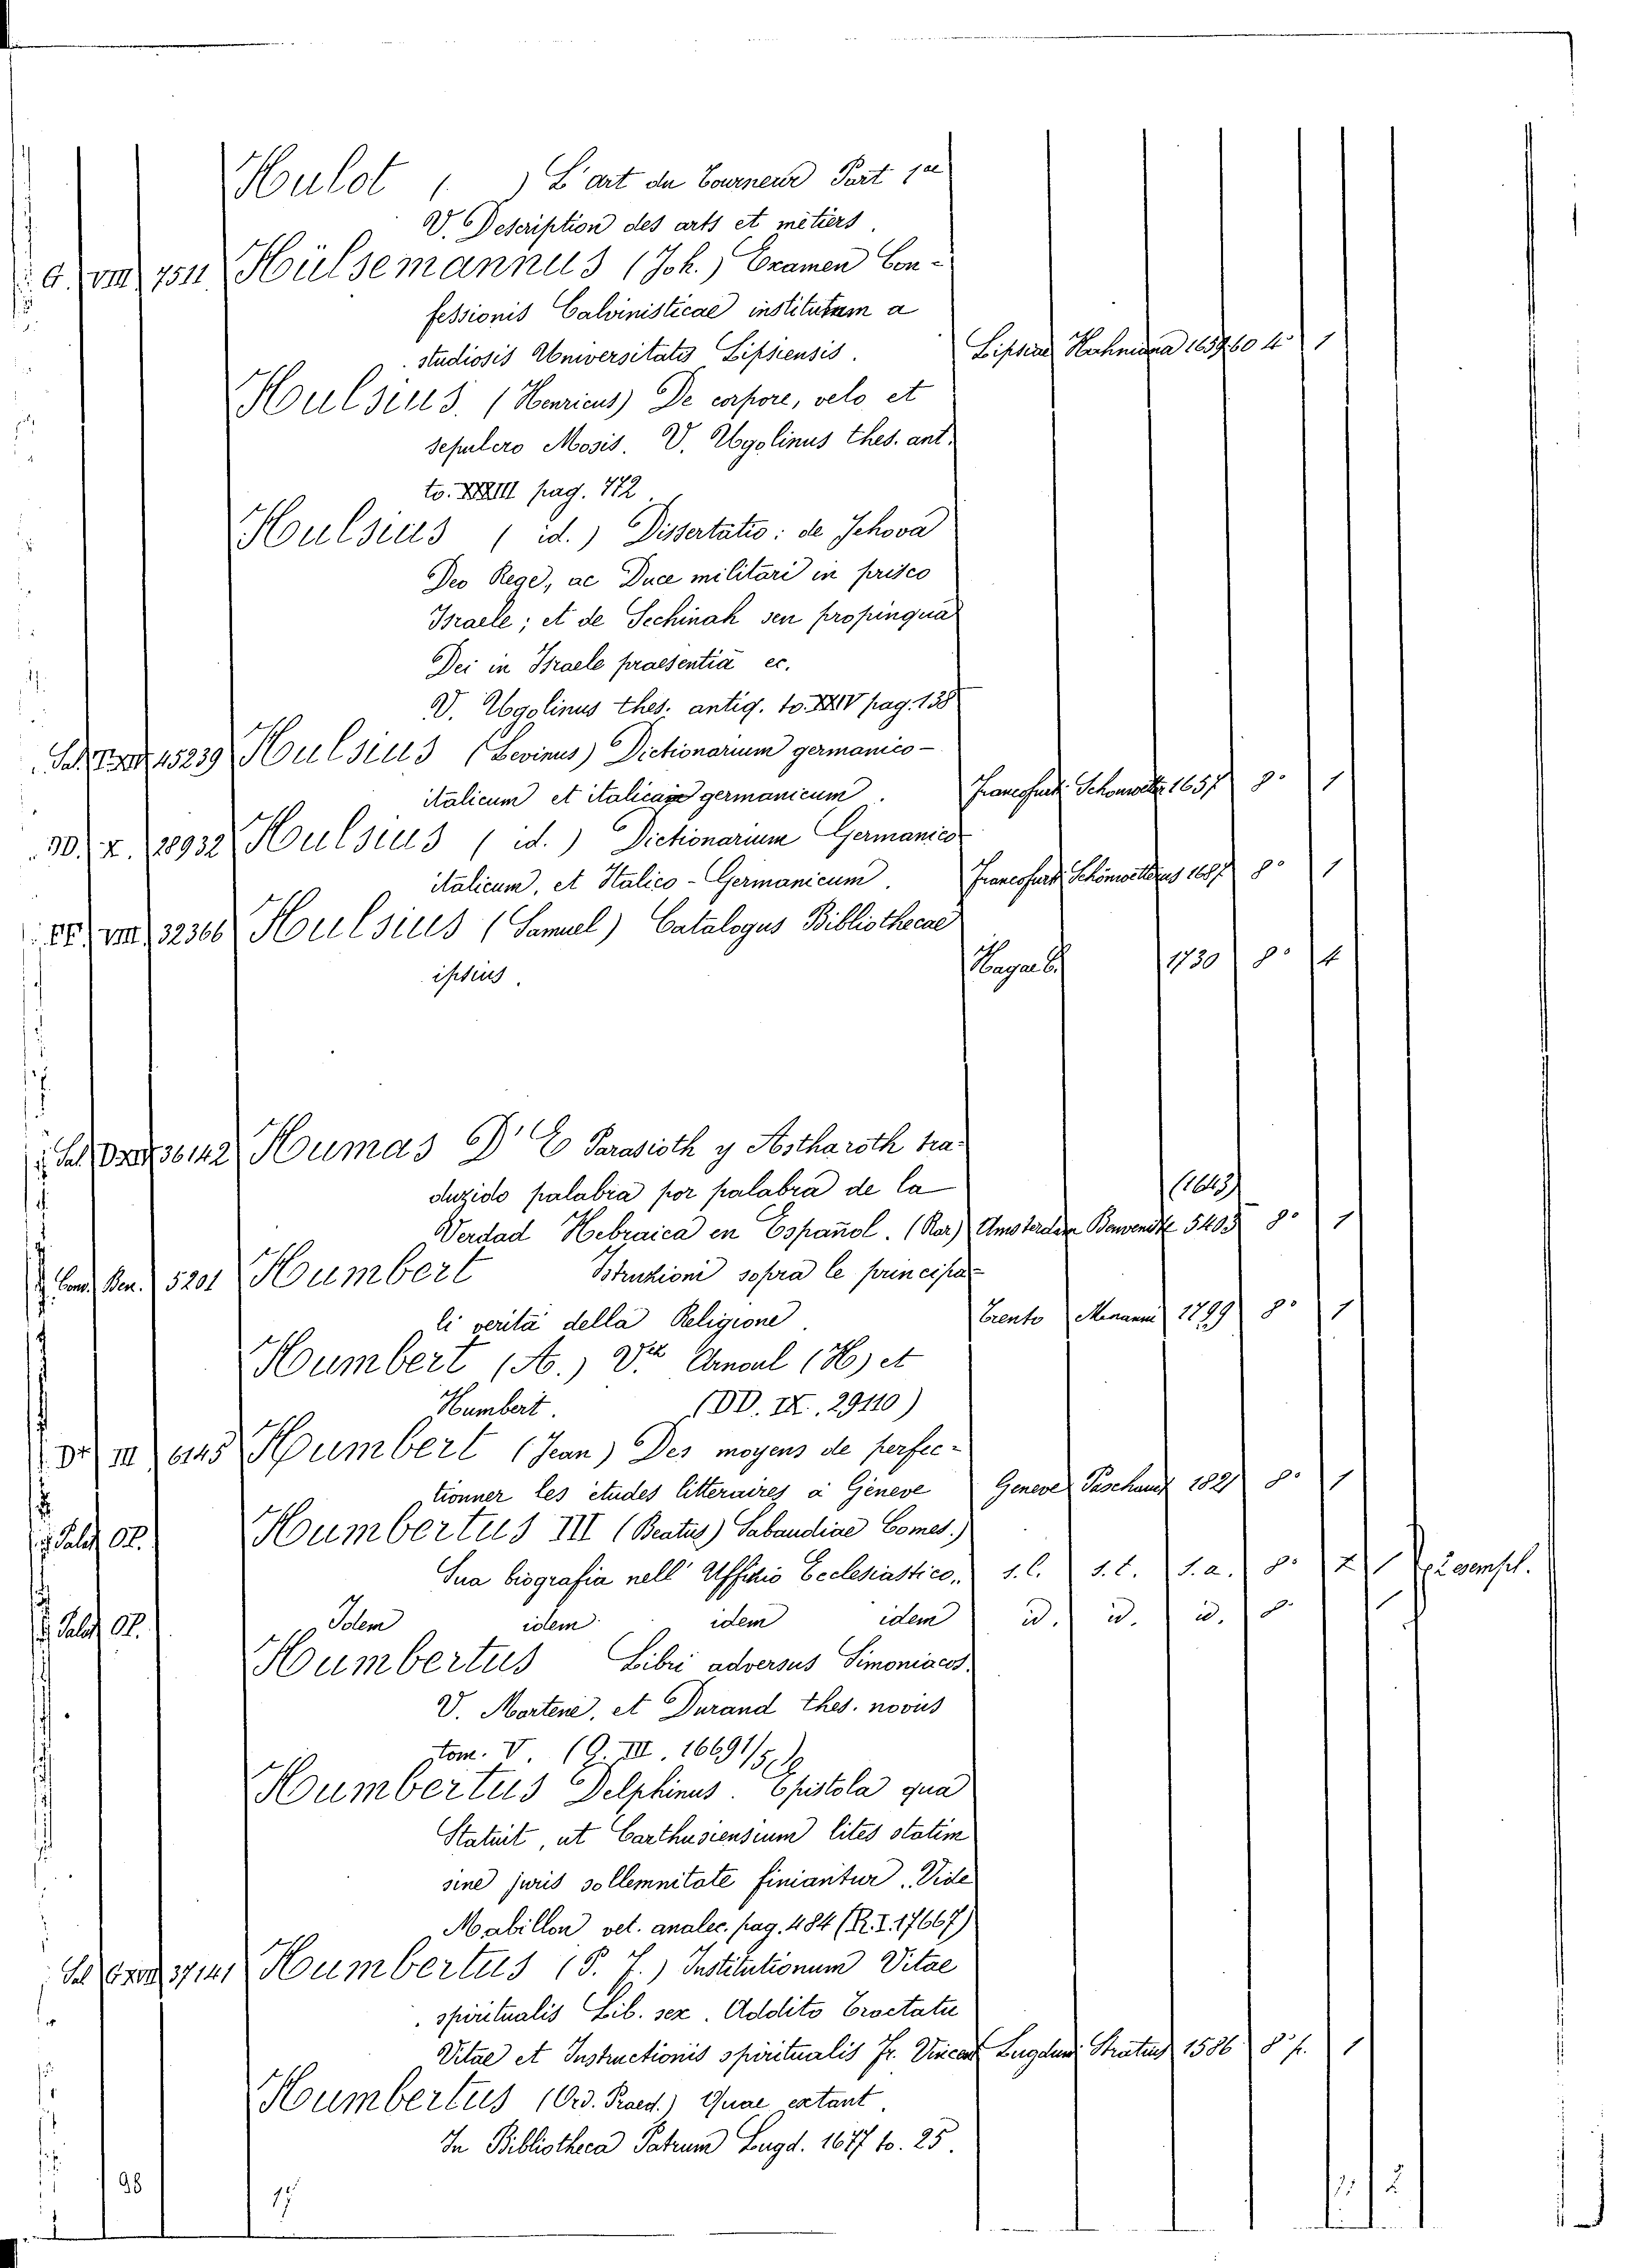 Hulot ( ) L'art du Tourneur Part 1re
V. Description des arts et métiers.
G. VIII 7511 Hülsemannus (Joh.) Examen Con-
fessionis Calvinisticae institutum a
studiosis Universitatis Lipsiensis. Lipsiae 1659.60 4° 1
Hulsius. (Henricus) De corpore, velo et
sepulcro Mosis. V. Ugolinus thes. ant.
to. XXXIII pag. 772
Hulsius (id.) Dissertatio: de Jehova
Deo Rege, ac Duce militari in prisco
Israele; et de Sechinah seu propinqua
Dei in Israele praesentia ec.
V. Ugolinus thes. antiq. to. XXIV pag. 138
45239 Hulsius (Levinus) Dictionarium germanico-
italicum et italicum germanicum. Francofurt. Schonwetter 1657 8° 1
X. 28932 Hulsius (id.) Dictionarium Germanico
italicum, et Italico-Germanicum. Francofurt Schönwetterus 1687 8° 1
VIII 32366 Hulsius (Samuel) Catalogus Bibliothecae
ipsius. Hagae C. 1730 8° 4
36142 Humas D' E Parasioth y Astharoth tra-
duzido palabra por palabra de la (1643)
Verdad Hebraica en Español. (Rar) Amsterdam 5403 8° 1
Cond. Ben. 5201 Humbert Istruzioni sopra le principa-
li verità della Religione. Trento 1799 8° 1
Humbert (A.) Vde Arnoul (H) et
Humbert. (DD. IX. 29110)
III 6145 Humbert (Jean) Des moyens de perfec-
tionner les études litteraires à Géneve Geneve Paschoud 1821 8° 1
Palch Op. Humbertus III (Beatus) Sabaudiae Comes.)
Sua biografia nell' Uffizio Ecclesiastico. s.l. s.t. s.a. 8° 2 1 2 esempl.
Palch Op. Idem idem idem idem id. id. id. 8°
Humbertus Libri adversus Simoniacos.
V. Martene, et Durand thes. novus
tom. V. (Q. III. 16691/5.)
Humbertus Delphinus. Epistola qua
Statuit, ut Carthusiensium lites statim
sine juris sollemnitate finiantur. Vide
Mabillon vet. analec. pag. 484 (R. I. 17667)
37141 Humbertus (P. F.) Institutionum Vitae
spiritualis Lib. sex. Addito Tractatu
Vitae et Instructionis spiritualis Fr. Vincent Lugduni Stratius 1586 8° p. 1
Humbertus (Ord. Praed.) Quae extant.
In Bibliotheca Patrum Lugd. 1677 to. 25.
98 17